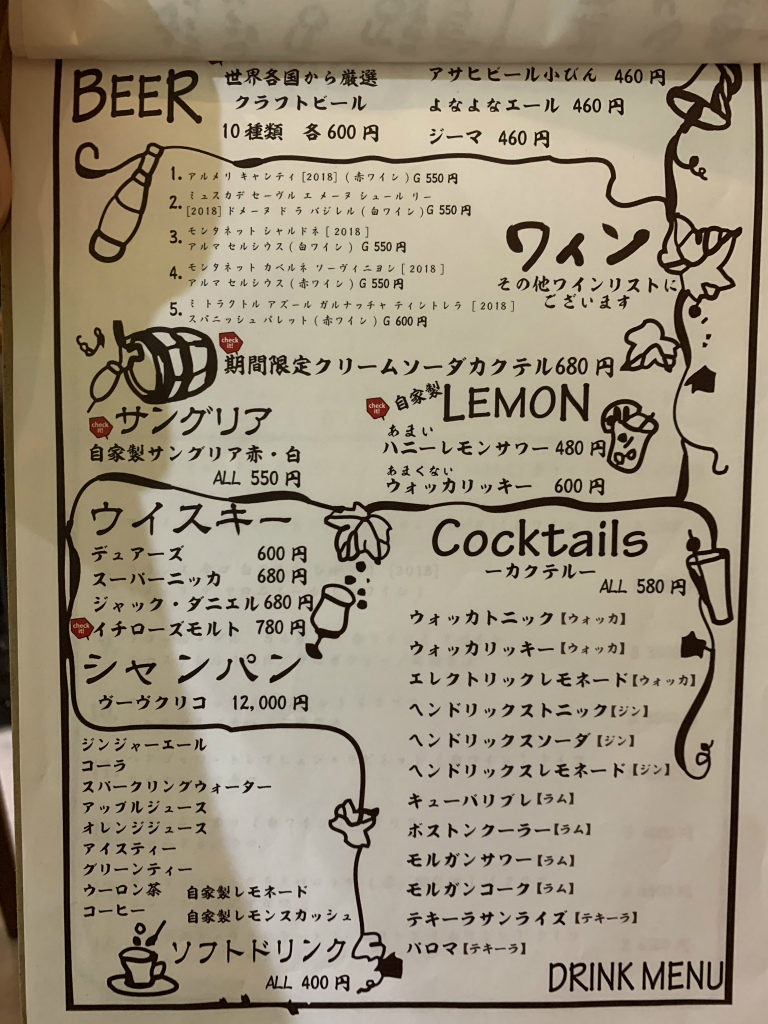 BEER
世界各国から厳選
クラフトビール
10種類 各600円
アサヒビール小びん 460円
よなよなエール 460円
ジーマ 460円
1. アルメリ キャンティ [2018] (赤ワイン) G 550円
2. ミュスカデ セーヴル エ メーヌ シュール リー
[2018] ドメーヌ ド ラ バジレル (白ワイン) G 550円
3. モンタネット シャルドネ [2018]
アルマ セルシウス (白ワイン) G 550円
4. モンタネット カベルネ ソーヴィニヨン [2018]
アルマ セルシウス (赤ワイン) G 550円
5. ミ トラクトル アズール ガルナッチャ ティントレラ [2018]
スパニッシュ パレット (赤ワイン) G 600円
ワイン
その他ワインリストに
ございます
check it!
期間限定クリームソーダカクテル680円
check it!
サングリア
自家製サングリア赤・白
ALL 550円
check it!
自家製
LEMON
あまい
ハニーレモンサワー 480円
あまくない
ウォッカリッキー 600円
ウイスキー
デュアーズ 600円
スーパーニッカ 680円
ジャック・ダニエル 680円
check it!
イチローズモルト 780円
シャンパン
ヴーヴクリコ 12,000円
Cocktails
ーカクテルー
ALL 580円
ウォッカトニック【ウォッカ】
ウォッカリッキー【ウォッカ】
エレクトリックレモネード【ウォッカ】
ヘンドリックストニック【ジン】
ヘンドリックスソーダ【ジン】
ヘンドリックスレモネード【ジン】
キューバリブレ【ラム】
ボストンクーラー【ラム】
モルガンサワー【ラム】
モルガンコーク【ラム】
テキーラサンライズ【テキーラ】
パロマ【テキーラ】
ジンジャーエール
コーラ
スパークリングウォーター
アップルジュース
オレンジジュース
アイスティー
グリーンティー
ウーロン茶
コーヒー
自家製レモネード
自家製レモンスカッシュ
ソフトドリンク
ALL 400円
DRINK MENU